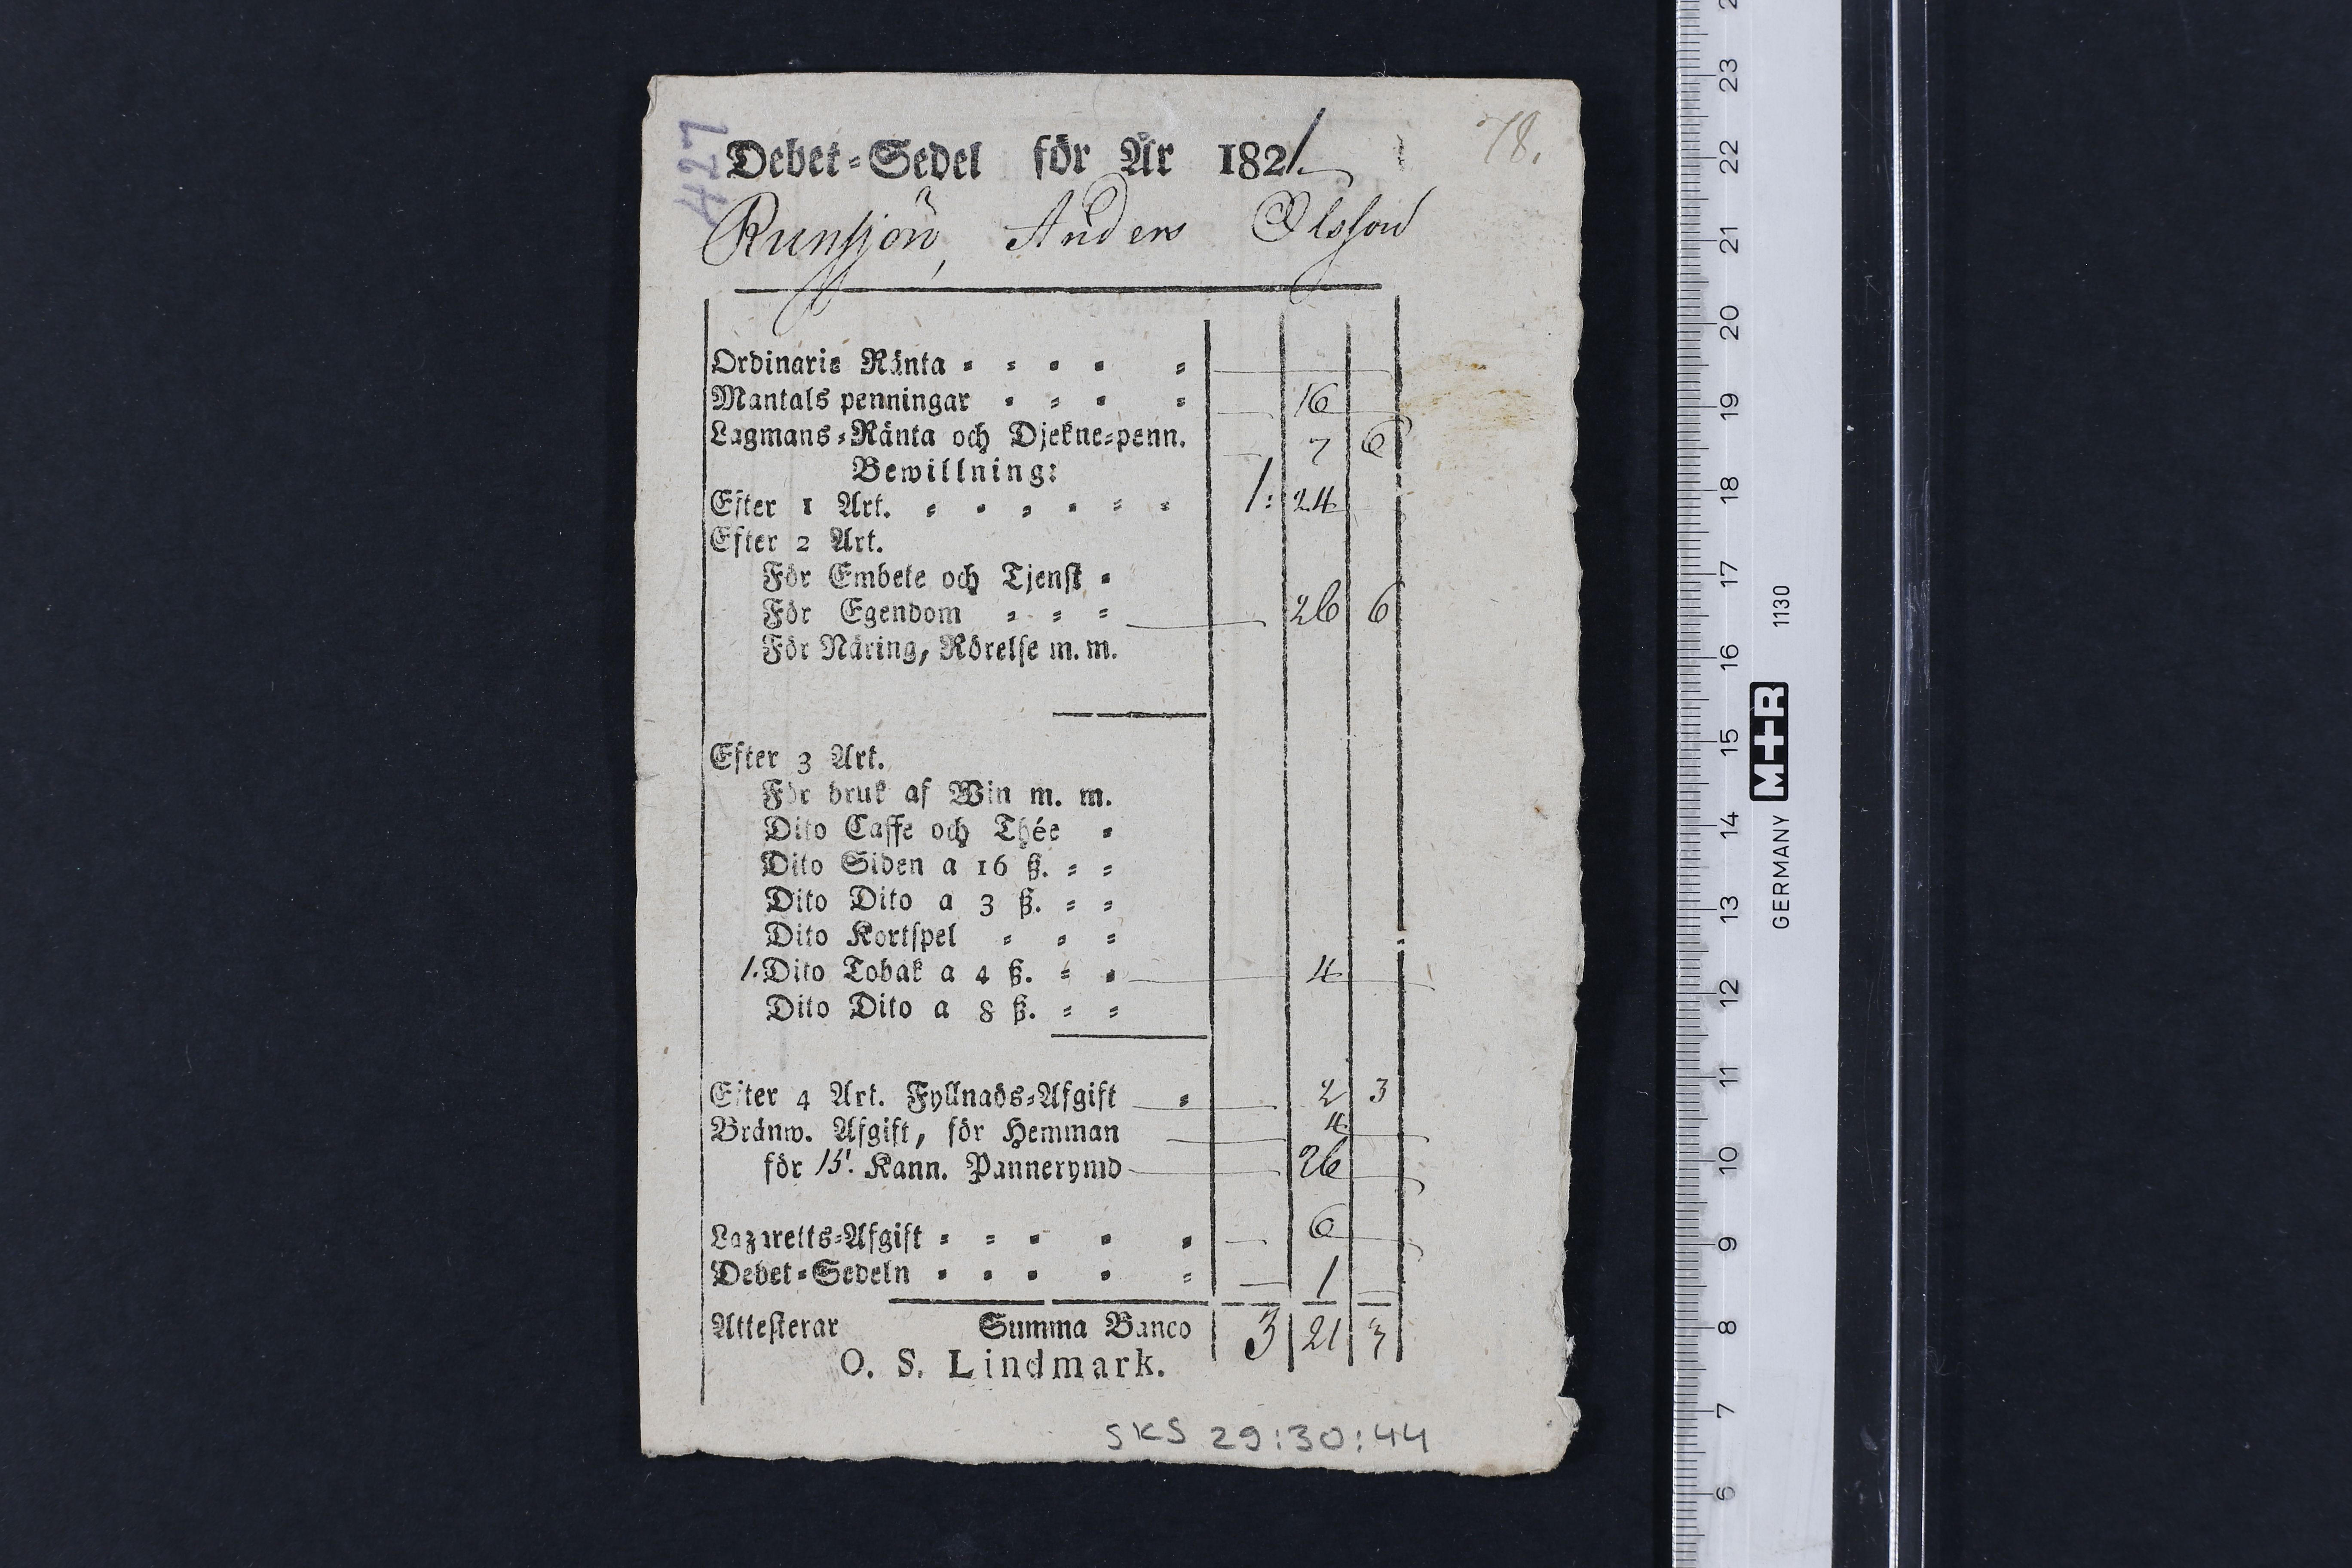 4227
78.
Debet-Sedel för År 1821.
Runsjön, Anders Olsson
Ordinarie Ränta
Mantals penningar 16
Lagmans-Ränta och Djekne-penn. 7 6
Bewillning:
Efter 1 Art. 1: 24
Efter 2 Art.
För Embete och Tjenst
För Egendom 26 6
För Näring, Rörelse m. m.
Efter 3 Art.
För bruk af Win m. m.
Dito Caffe och Thée
Dito Siden a 16 ß.
Dito Dito a 3 ß.
Dito Kortspel
1. Dito Tobak a 4 ß. 4
Dito Dito a 8 ß.
Efter 4 Art. Fyllnads-Afgift 2 3
Bränw. Afgift, för Hemman 4
för 15. Kann. Pannerymd 26
Lazaretts-Afgift 6
Debet-Sedeln 1
Attesterar Summa Banco 3 21 3
O. S. Lindmark.
SKS 29:30:44
23
22
21
20
19
18
17
16
15
14
13
12
11
10
9
8
7
6
GERMANY M+R 1130